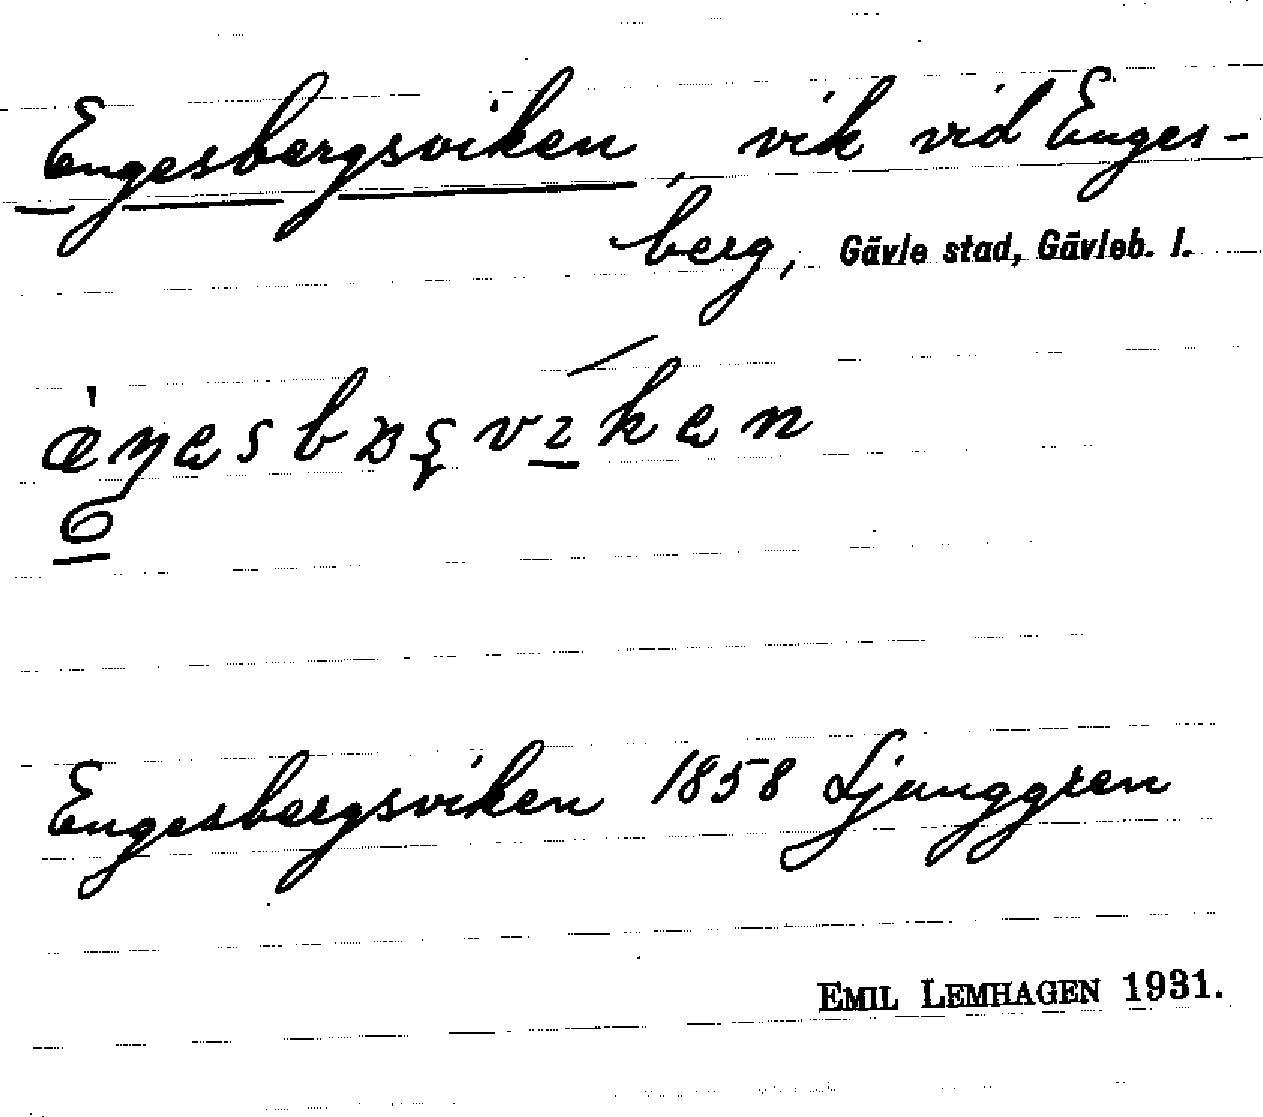 Engesbergsviken, vik vid Enges-
berg, Gävle stad, Gävleb. l.
Engesbergsviken 1858 Ljunggren
EMIL LEMHAGEN 1931.